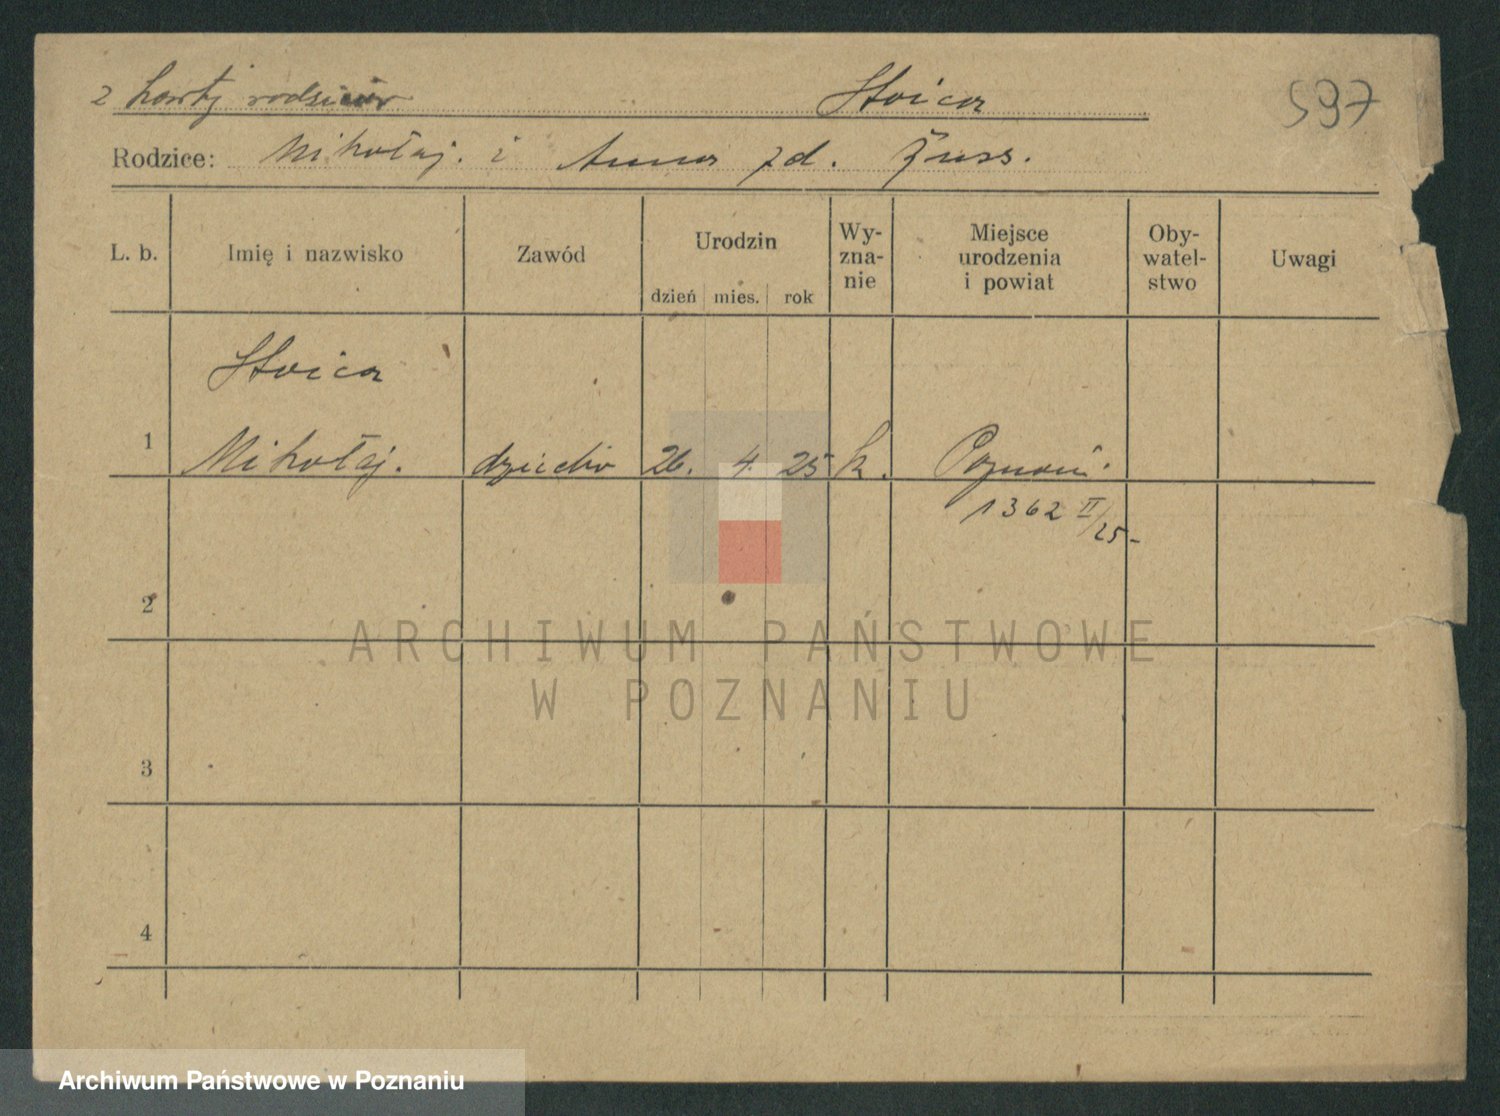 z karty rodziców Stoica 597
Rodzice: Mikołaj. i Anna zd. Zuss.
L. b. Imię i nazwisko Zawód Urodzin dzień mies. rok Wy-zna-nie Miejsce urodzenia i powiat Oby-watel-stwo Uwagi
Stoica
1 Mikołaj. dziecko 26. 4. 25 k. Poznań.
1362 II/25-
2
ARCHIWUM PAŃSTWOWE
W POZNANIU
3
4
Archiwum Państwowe w Poznaniu